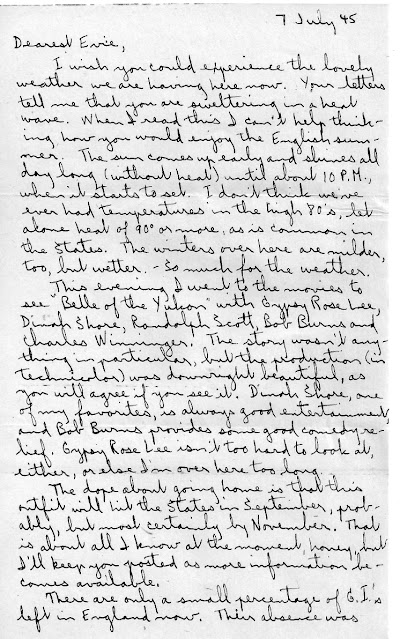 7 July 45
Dearest Evie,
I wish you could experience the lovely
weather we are having here now. Your letters
tell me that you are sweltering in a heat
wave. When I read this I can't help think-
ing how you would enjoy the English sum-
mer. The sun comes up early and shines all
day long (without heat) until about 10 P.M.,
when it starts to set. I don't think we've
ever had temperatures in the high 80's, let
alone heat of 90° or more, as is common in
the States. The winters over here are milder,
too, but wetter. - So much for the weather.
This evening I went to the movies to
see "Belle of the Yukon" with Gypsy Rose Lee,
Dinah Shore, Randolph Scott, Bob Burns and
Charles Winninger. The story wasn't any-
thing in particular, but the production (in
technicolor) was downright beautiful, as
you will agree if you see it. Dinah Shore, one
of my favorites, is always good entertainment,
and Bob Burns provides some good comedy re-
lief. Gypsy Rose Lee isn't too hard to look at,
either, or else I'm over here too long.
The dope about going home is that this
outfit will hit the States in September, prob-
ably, but most certainly by November. That
is about all I know at the moment, honey, but
I'll keep you posted as more information be-
comes available.
There are only a small percentage of G.I.'s
left in England now. Their absence was